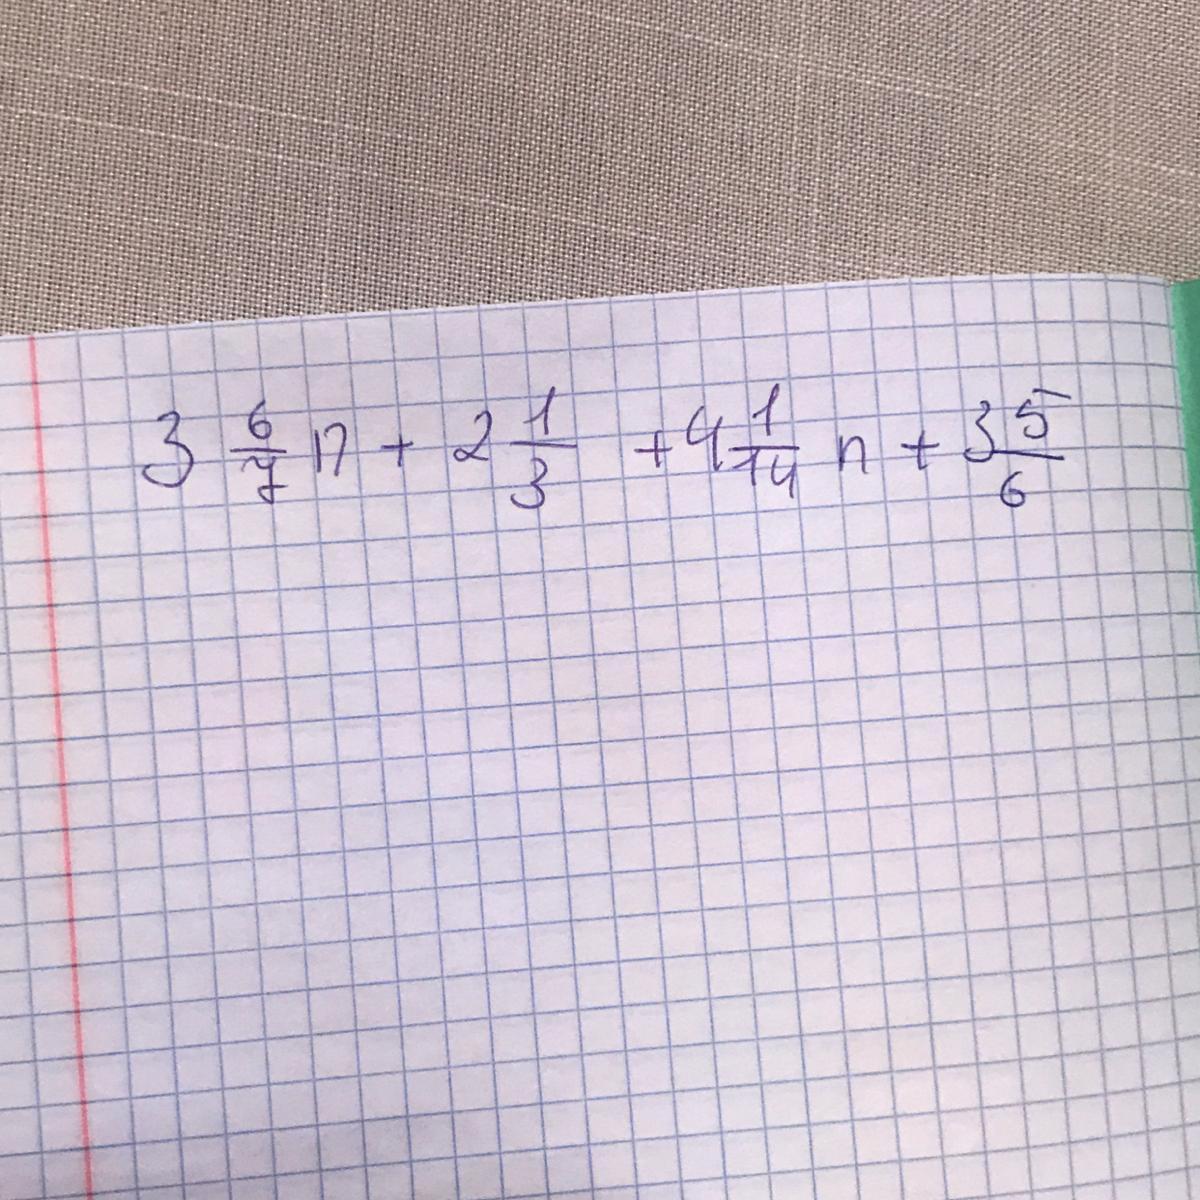 3 6/7 n + 2 1/3 + 4 1/14 n + 3 5/6